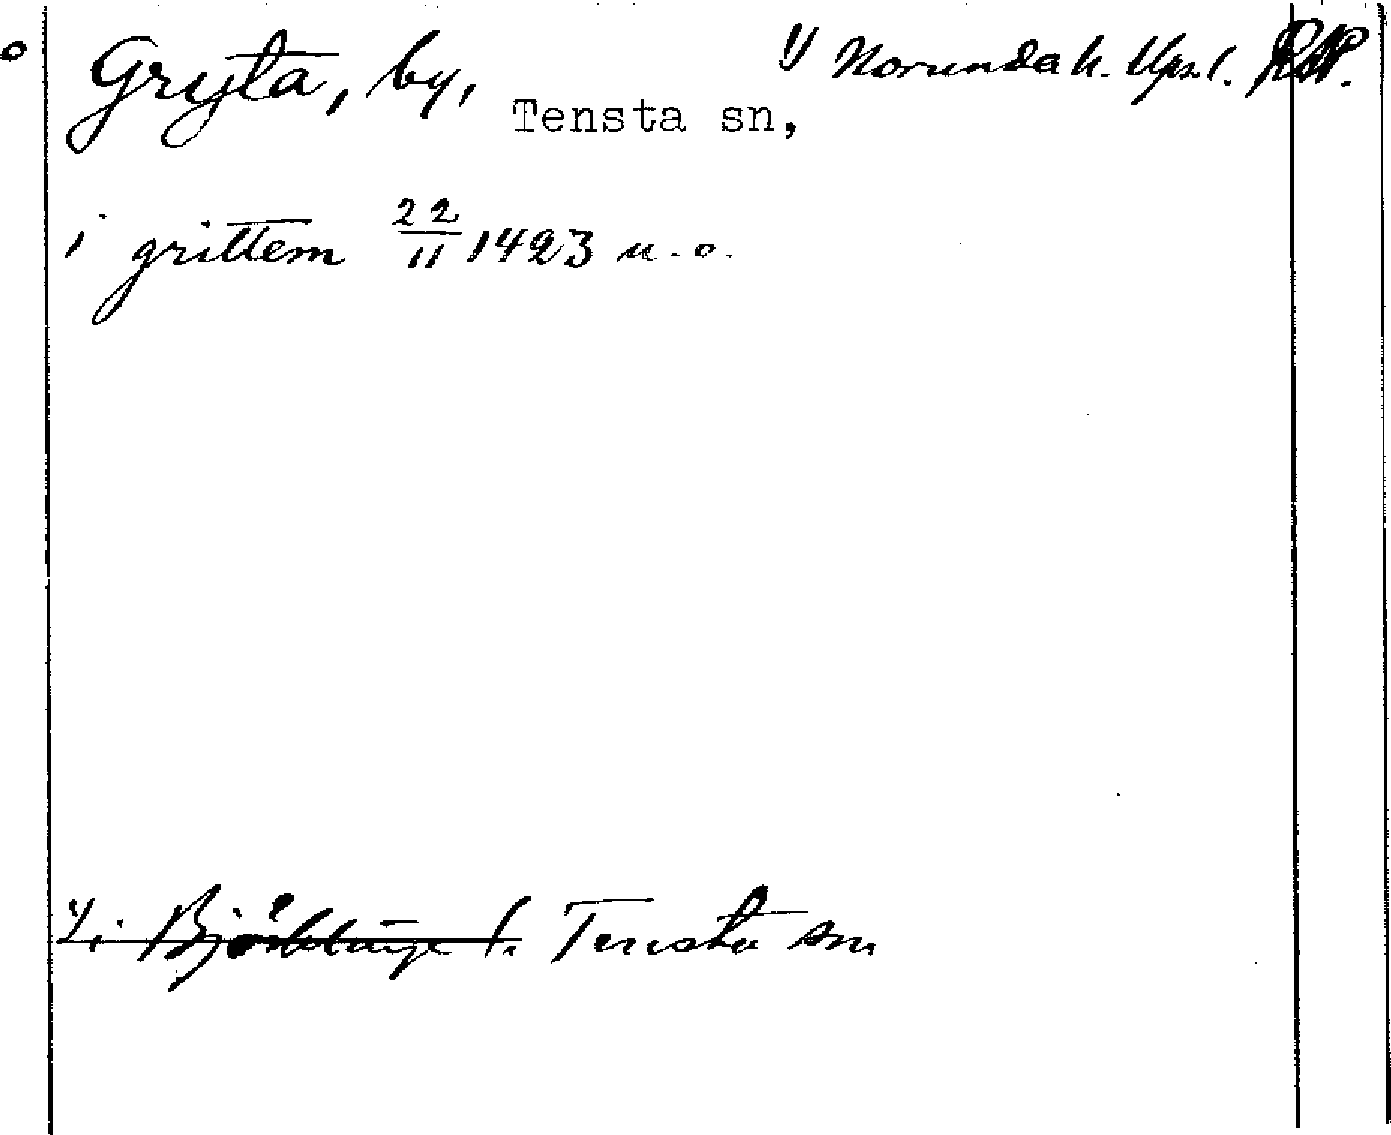 Gryta, by, Tensta sn, 1) Norunda h. Upsl. RAP.
i grittem 22/11 1423 u. o.
1) i Björklinge l. Tensta sn